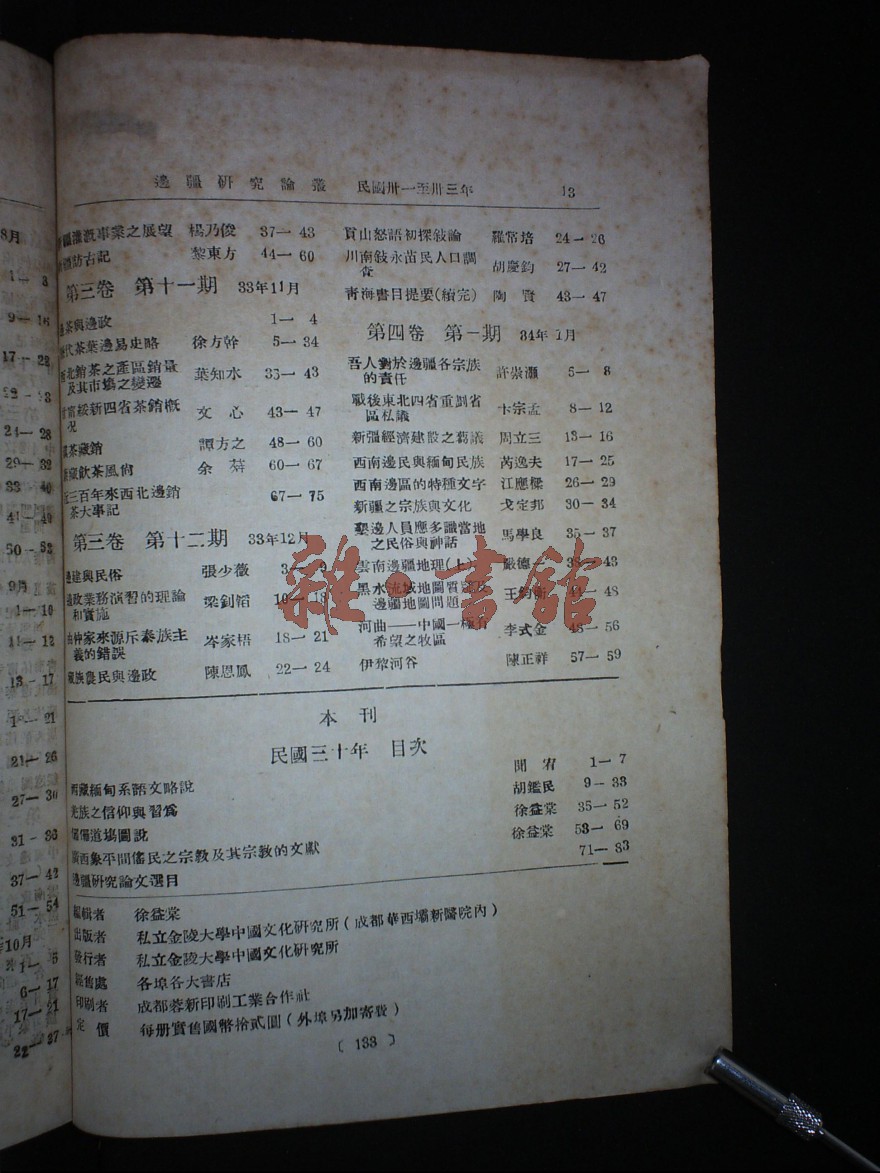 邊疆研究論叢 民國卅一至卅三年 13
疆灌溉事業之展望 楊乃俊 37—43
訪古記 黎東方 44—60
第三卷 第十一期 33年11月
茶與邊政 1—4
代茶葉邊易史略 徐方幹 5—34
西北銷茶之產區銷量
及其市場之變遷 葉知水 35—43
甘甯綏新四省茶銷概
況 文心 43—47
茶藏銷 譚方之 48—60
藏飲茶風尙 余 60—67
近三百年來西北邊銷
茶大事記 67—75
第三卷 第十二期 33年12月
邊建與民俗 張少薇 3—9
邊政業務演習的理論
和實施 梁釗韜 10—18
由仲家來源斥泰族主
義的錯誤 岑家梧 18—21
藏族農民與邊政 陳恩鳳 22—24
貢山怒語初探敍論 羅常培 24—26
川南敍永苗民人口調
查 胡慶鈞 27—42
青海書目提要(續完) 陶賢 43—47
第四卷 第一期 34年1月
吾人對於邊疆各宗族
的責任 許崇灝 5—8
戰後東北四省重劃省
區私議 卞宗孟 8—12
新疆經濟建設之芻議 周立三 13—16
西南邊民與緬甸民族 芮逸夫 17—25
西南邊區的特種文字 江應樑 26—29
新疆之宗族與文化 戈定邦 30—34
墾邊人員應多識當地
之民俗與神話 馬學良 35—37
雲南邊疆地理(上) 嚴德一 38—43
黑水流域地圖質疑及
邊疆地圖問題 王鈞衡 44—48
河曲——中國一極有
希望之牧區 李式金 48—56
伊犂河谷 陳正祥 57—59
本刊
民國三十年 目次
西藏緬甸系語文略說 聞宥 1—7
羌族之信仰與習爲 胡鑑民 9—33
道場圖說 徐益棠 35—52
廣西象平間傜民之宗教及其宗教的文獻 徐益棠 53—69
邊疆研究論文選目 71—83
編輯者 徐益棠
出版者 私立金陵大學中國文化研究所(成都華西壩新醫院內)
發行者 私立金陵大學中國文化研究所
經售處 各埠各大書店
印刷者 成都蓉新印刷工業合作社
定價 每册實售國幣拾貳圓(外埠另加寄費)
〔133〕
8月
1—8
9—16
17—28
21—28
29—32
33—40
41—49
50—53
9月
1—10
11—12
13—17
1—21
21—26
27—30
31—36
37—42
51—54
10月
1—5
6—17
17—21
22—27
雜·書館